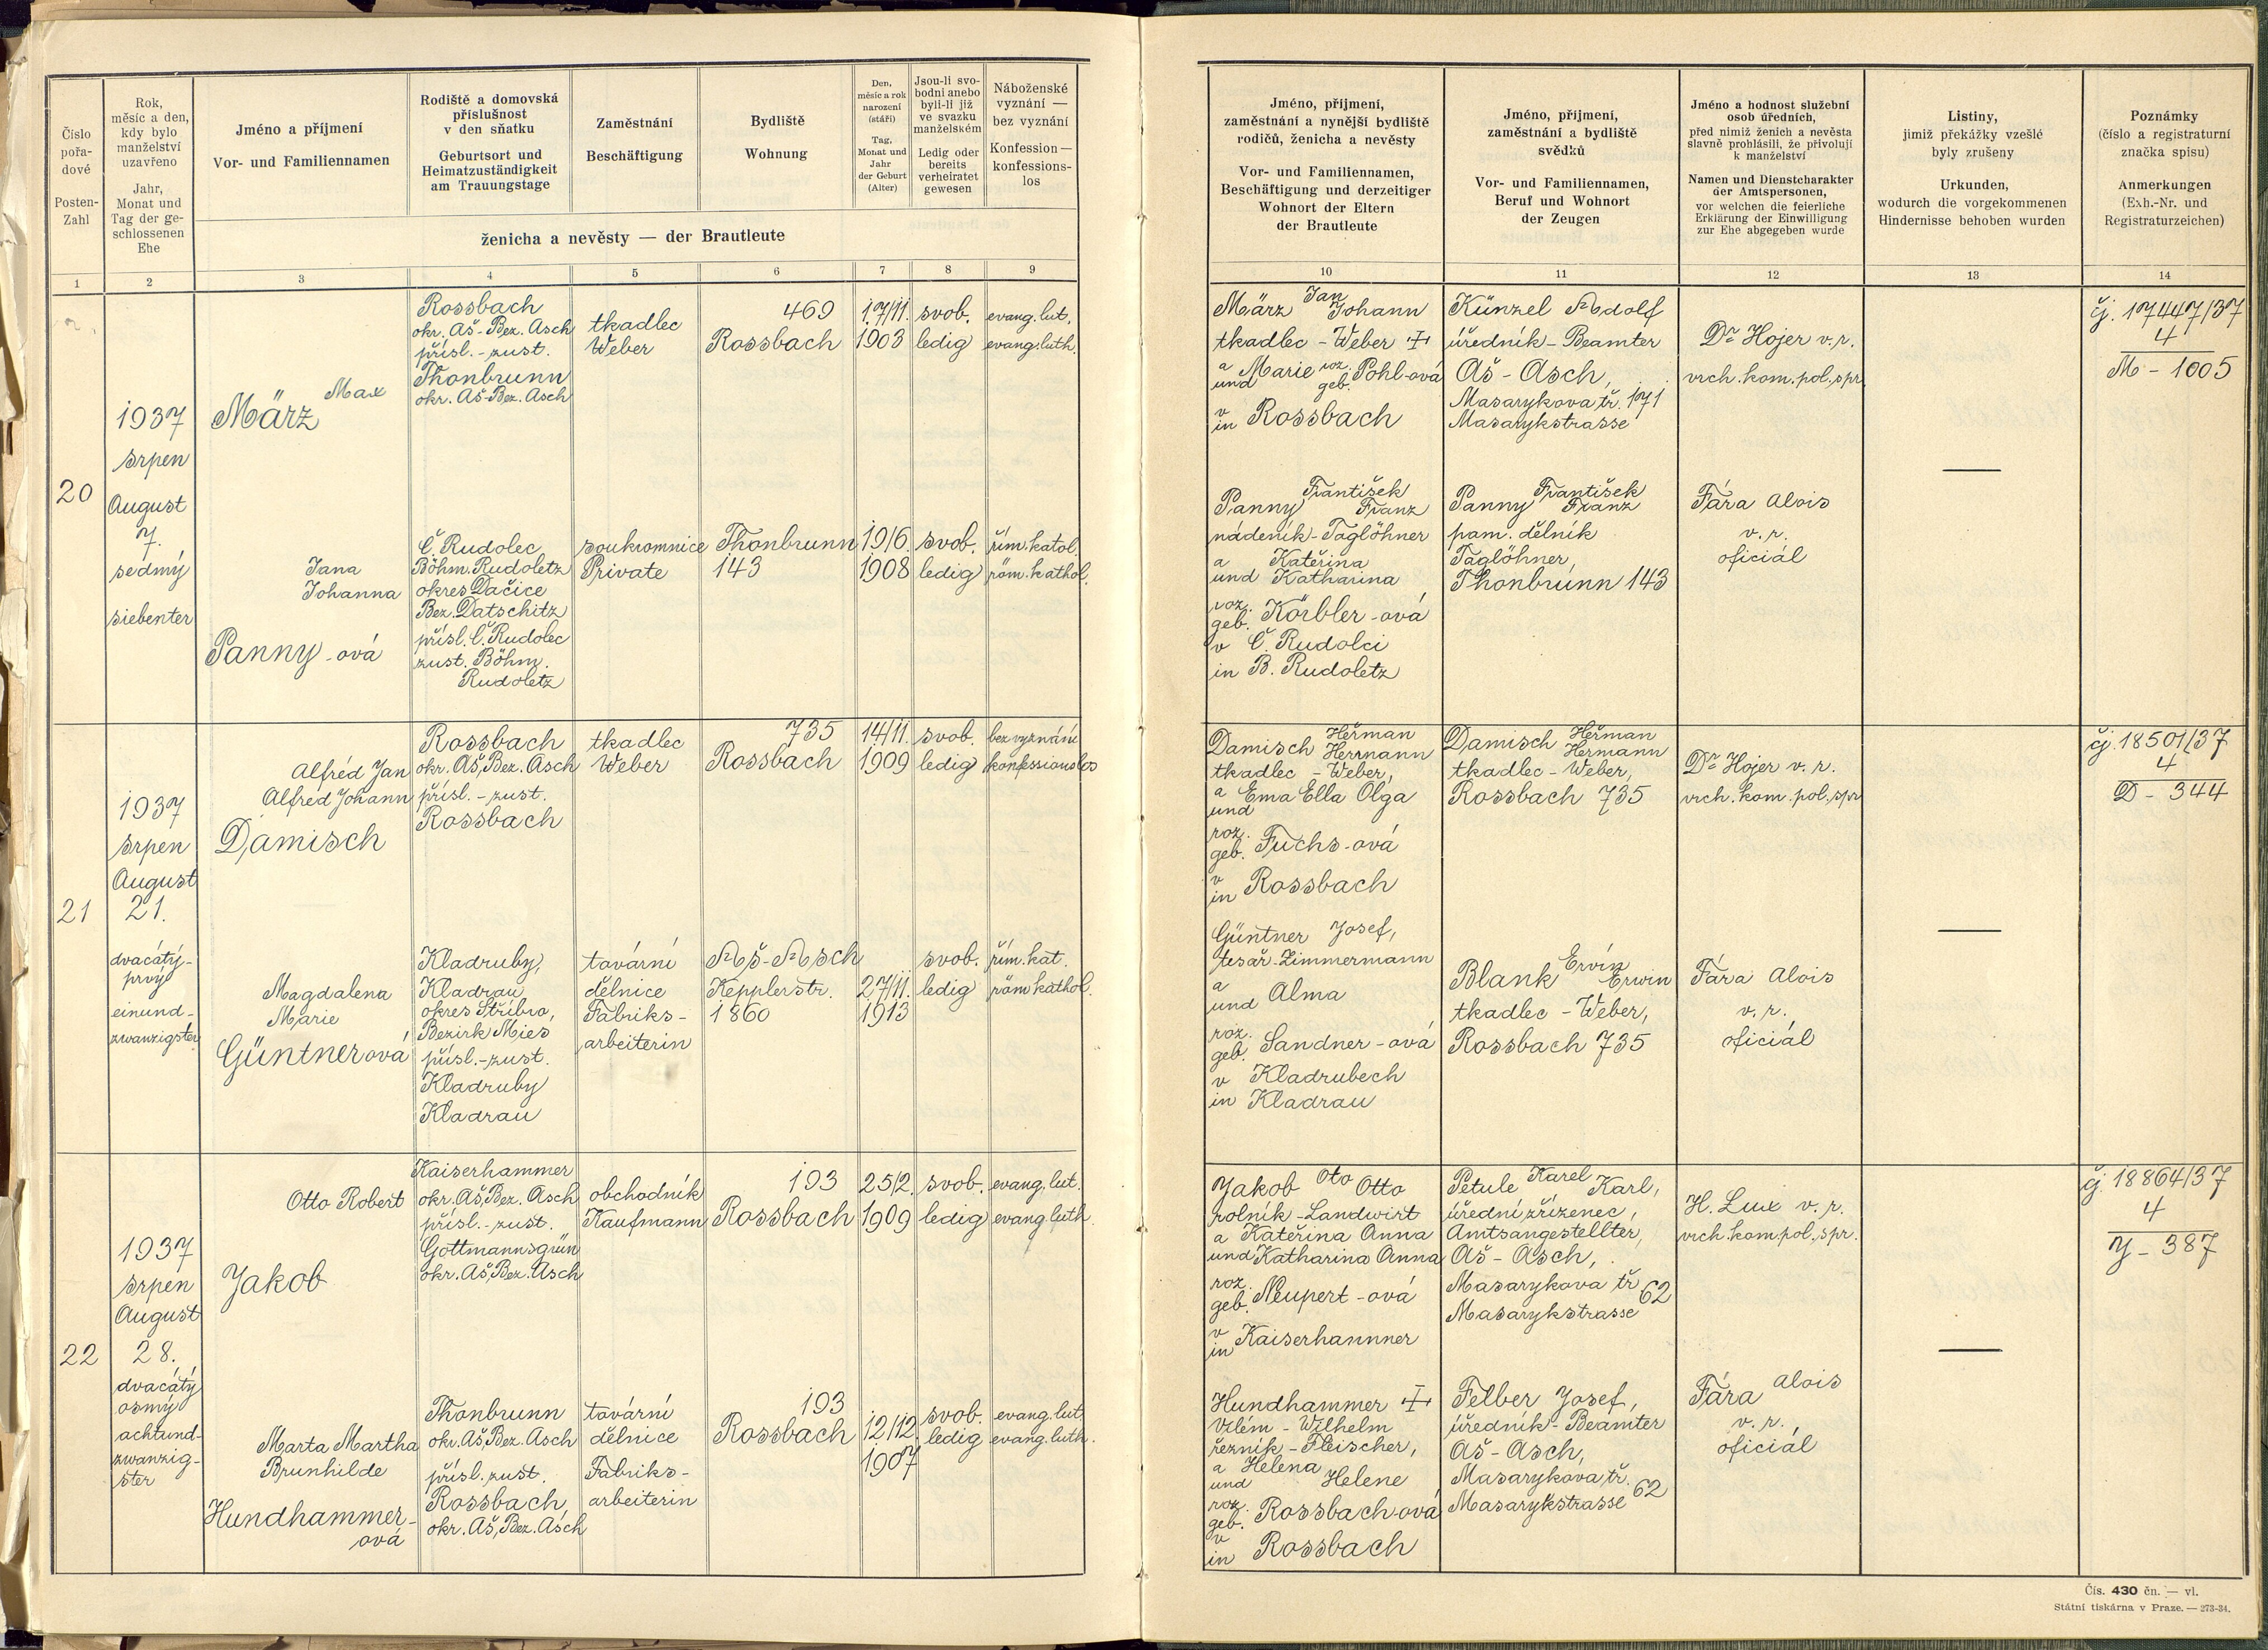 Číslo
pořa-
dové
Posten-
Zahl
Rok,
měsíc a den,
kdy bylo
manželství
uzavřeno
Jahr,
Monat und
Tag der ge-
schlossenen
Ehe
Jméno a příjmení
Vor- und Familiennamen
Rodiště a domovská
příslušnost
v den sňatku
Geburtsort und
Heimatzuständigkeit
am Trauungstage
Zaměstnání
Beschäftigung
Bydliště
Wohnung
Den,
měsíc a rok
narození
(stáří)
Tag,
Monat und
Jahr
der Geburt
(Alter)
Jsou-li svo-
bodni anebo
byli-li již
ve svazku
manželském
Ledig oder
bereits
verheiratet
gewesen
Náboženské
vyznání —
bez vyznání
Konfession —
konfessions-
los
ženicha a nevěsty — der Brautleute
1 2 3 4 5 6 7 8 9
20
1937
srpen
August
7.
sedmý
siebenter
Max
März
Rossbach
okr. Aš - Bez. Asch
přísl. - zust.
Thonbrunn
okr. Aš - Bez. Asch
tkadlec
Weber
469
Rossbach
17/11.
1903
svob.
ledig
evang. lut.
evang. luth.
Jana
Johanna
Panny - ová
Č. Rudolec
Böhm. Rudoletz
okres Dačice
Bez. Datschitz
přísl. Č. Rudolec
zust. Böhm.
Rudoletz
soukromnice
Private
Thonbrunn
143
19/6.
1908
svob.
ledig
řím. katol.
röm. kathol.
21
1937
srpen
August
21.
dvacátý-
prvý
einund-
zwanzigster
Alfréd Jan
Alfred Johann
Damisch
Rossbach
okr. Aš, Bez. Asch
přísl. - zust.
Rossbach
tkadlec
Weber
735
Rossbach
14/11.
1909
svob.
ledig
bez vyznání
konfessionslos
Magdalena
Marie
Güntnerová
Kladruby,
Kladrau
okres Stříbro,
Bezirk Mies
přísl. - zust.
Kladruby
Kladrau
tovární
dělnice
Fabriks-
arbeiterin
Aš - Asch
Kepplerstr.
1860
27/11.
1913
svob.
ledig
řím. kat.
röm kathol.
22
1937
srpen
August
28.
dvacátý
osmý
achtund-
zwanzig-
ster
Otto Robert
Jakob
Kaiserhammer
okr. Aš, Bez. Asch
přísl. - zust.
Gottmannsgrün
okr. Aš, Bez. Asch
obchodník
Kaufmann
193
Rossbach
25/2.
1909
svob.
ledig
evang. lut.
evang. luth.
Marta Martha
Brunhilde
Hundhammer-
ová
Thonbrunn
okr. Aš, Bez. Asch
přísl. zust.
Rossbach,
okr. Aš, Bez. Asch
tovární
dělnice
Fabriks-
arbeiterin
193
Rossbach
12/12.
1907
svob.
ledig
evang. lut.
evang. luth.
Jméno, příjmení,
zaměstnání a nynější bydliště
rodičů, ženicha a nevěsty
Vor- und Familiennamen,
Beschäftigung und derzeitiger
Wohnort der Eltern
der Brautleute
Jméno, příjmení,
zaměstnání a bydliště
svědků
Vor- und Familiennamen,
Beruf und Wohnort
der Zeugen
Jméno a hodnost služební
osob úředních,
před nimiž ženich a nevěsta
slavně prohlásili, že přivolují
k manželství
Namen und Dienstcharakter
der Amtspersonen,
vor welchen die feierliche
Erklärung der Einwilligung
zur Ehe abgegeben wurde
Listiny,
jimiž překážky vzešlé
byly zrušeny
Urkunden,
wodurch die vorgekommenen
Hindernisse behoben wurden
Poznámky
(číslo a registraturní
značka spisu)
Anmerkungen
(Exh.-Nr. und
Registraturzeichen)
10 11 12 13 14
Jan
März Johann
tkadlec - Weber
a Marie roz. Pohl-ová
und geb.
v
in Rossbach
Künzel Adolf
úředník - Beamter
Aš - Asch,
Masarykova tř. 171
Masarykstrasse
Dr Hojer v. r.
vrch. kom. pol. spr.
čj. 17447/37
4
M - 1005
František
Panny Franz
nádeník - Taglöhner
a Kateřina
und Katharina
roz.
geb. Körbler - ová
v Č. Rudolci
in B. Rudoletz
František
Panny Franz
pam. dělník
Taglöhner,
Thonbrunn 143
Fára Alois
v. r.
oficiál
—
Heřman
Damisch Herrmann
tkadlec - Weber,
a Ema Ella Olga
und
roz.
geb. Fuchs-ová
v
in Rossbach
Heřman
Damisch Hermann
tkadlec - Weber,
Rossbach 735
Dr Hojer v. r.
vrch. kom. pol. spr
čj. 18501/37
4
D - 344
Güntner Josef,
tesař - Zimmermann
a
und Alma
roz.
geb. Sandner - ová
v Kladrubech
in Kladrau
Ervín
Blank Erwin
tkadlec - Weber,
Rossbach 735
Fára Alois
v. r.
oficiál
—
Jakob Oto Otto
rolník - Landwirt
a Kateřina Anna
und Katharina Anna
roz.
geb. Neupert - ová
v
in Kaiserhammer
Petule Karel Karl,
úřední zřízenec,
Amtsangestellter,
Aš - Asch,
Masarykova tř. 62
Masarykstrasse
H. Lux v. r.
vrch. kom. pol. spr.
čj. 18864/37
4
J - 387
Hundhammer
Vilém - Wilhelm
řezník - Fleischer,
a Helena
und Helene
roz.
geb. Rossbach-ová
v
in Rossbach
Felber Josef,
úředník - Beamter
Aš - Asch,
Masarykova tř. 62
Masarykstrasse
Fára Alois
v. r.
oficiál
—
Čís. 430 čn. — vl.
Státní tiskárna v Praze. — 273-34.